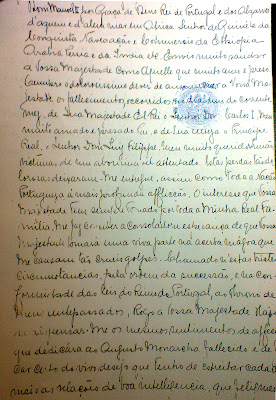 Dom Manuel, por Graça de Deus Rei de Portugal e dos Algarves
d'aquem e d'alem mar em Africa Senhor de Guiné e da
Conquista Navegação e Commercio da Ethiopia
Arabia Persia e da India etc. Envio muito saudar
a Vossa Majestade como Aquelle que muito amo e prezo.
Cumpre o doloroso dever de annunciar a Vossa Ma-
jestade os fallecimentos, occorridos no dia um do corrente
mez, de Sua Magestade El-Rei o Senhor Dom Carlos I, Meu
muito amado e prezado Pae, e de Sua Alteza o Principe
Real, o Senhor Dom Luiz Filippe, Meu muito querido Irmão
victimas de um abominavel attentado. Estas perdas tão do-
lorosas deparam-Me entregue, assim como toda a Nação
Portugueza á mais profunda afflicção. O interesse que Vossa
Majestade tem sempre tomado por toda a Minha Real Fa-
milia, Me faz conceber a consoladora esperança de que Vossa
Majestade tomará uma viva parte na acerba magua que
Me causam tão crueis golpes. Chamado n'estas tristes
circumstancias, pela ordem da successão, e na Con-
formidade das Leis do Reino de Portugal, ao throno de
Meus antepassados, Rogo a Vossa Majestade Haja
de dispensar-Me os mesmos sentimentos de affecto
que dedicára ao Augusto Monarcha fallecido e de
ficar certo do vivo desejo que Tenho de estreitar cada vez
mais as relações de boa intelligencia, que felizmente